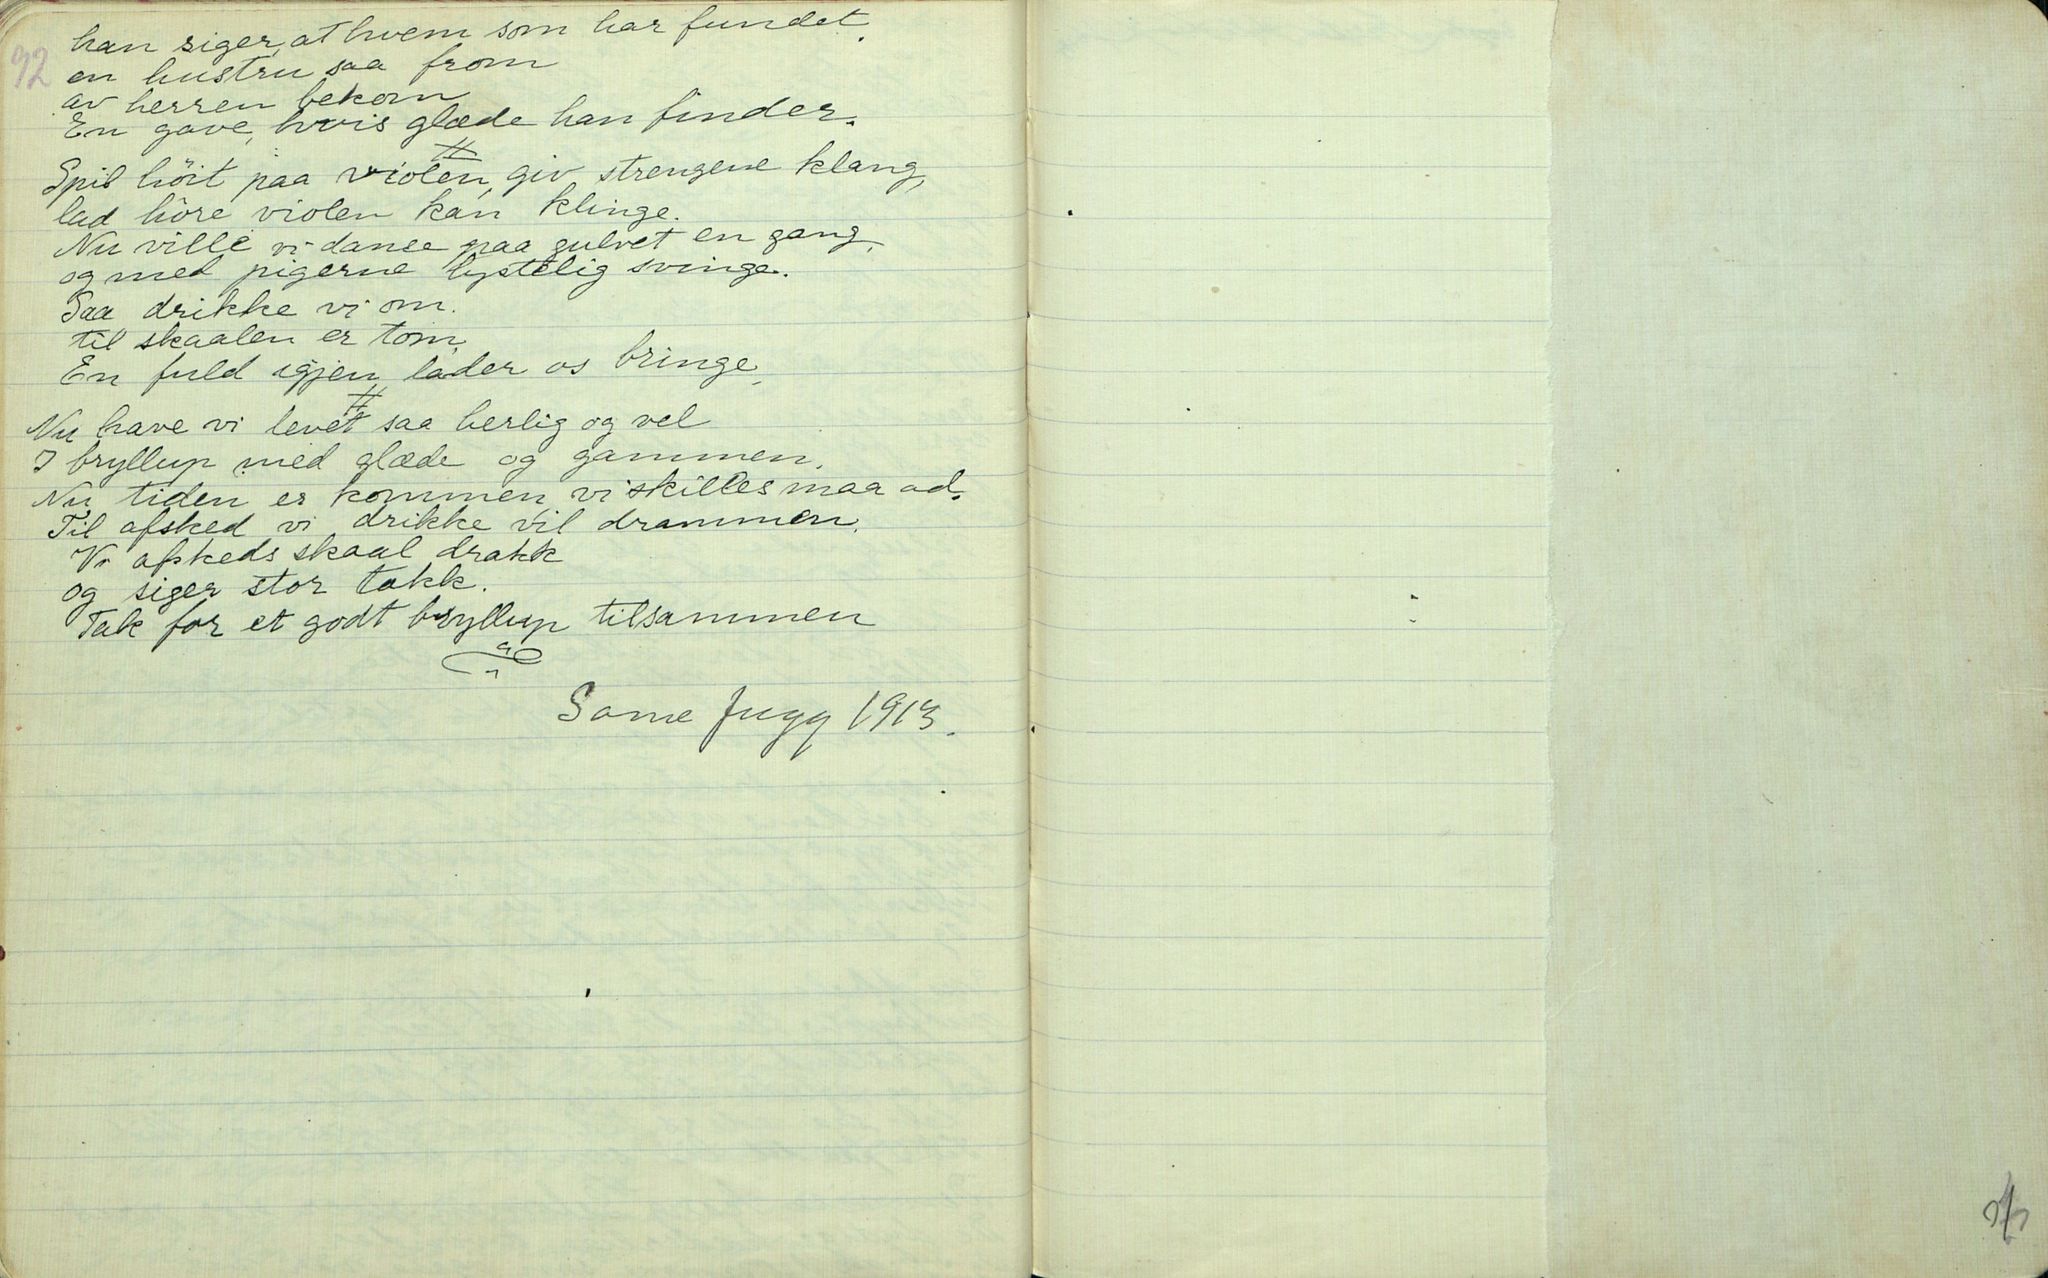 92
han siger, at hvem som har fundet.
en hustru saa from
av herren bekom
En gave, hvis glæde han finder.
#
Spil höit paa violen, giv strengene klang,
lad höre violen kan klinge.
Nu ville vi danse paa gulvet en gang,
og med pigerne lystelig svinge.
Saa drikke vi om.
til skaalen er tom.
En fuld igjen lader os bringe.
#
Nu have vi levet saa herlig og vel
I bryllup med glæde og gammen.
Nu tiden er kommen, vi skilles maa ad.
Til afsked vi drikke vil drammen.
Vi afskeds skaal drakk
og siger stor takk.
Tak for et godt bryllup tilsammen
1913.